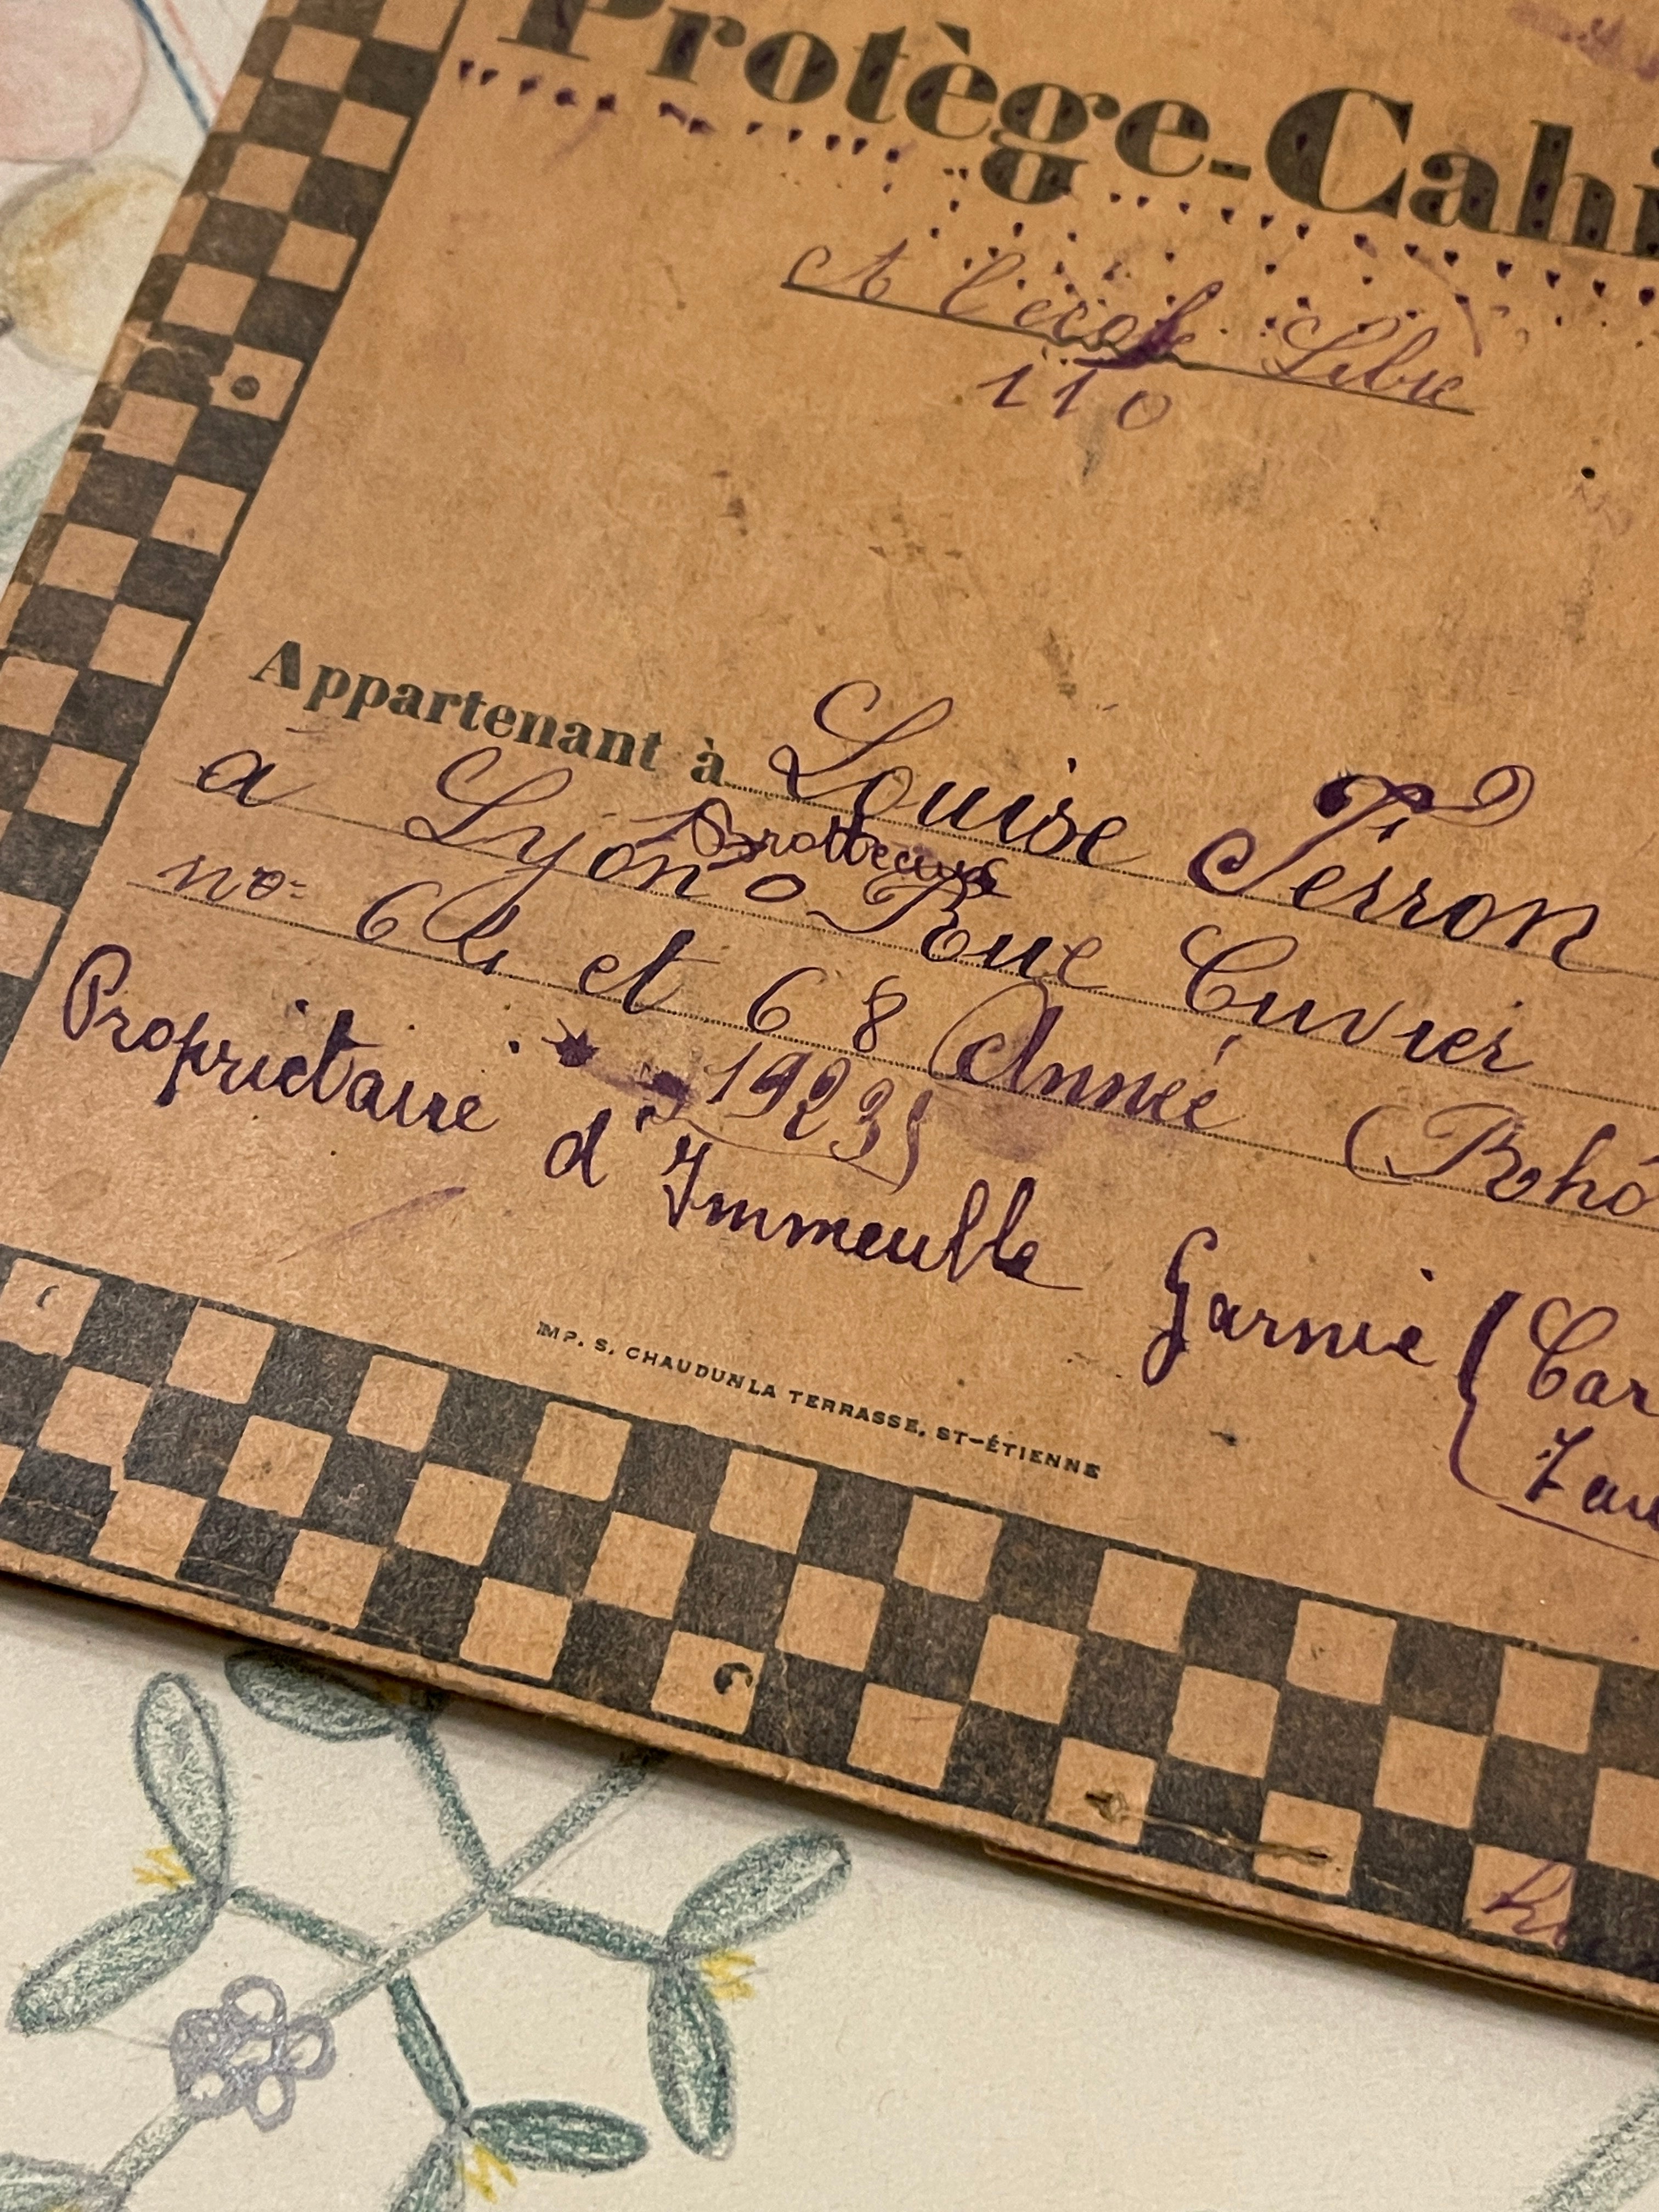 Protège-Cahi
A l'ecole Libre
110
Appartenant à Louise Ferron
a Lyon o Rue Cuvier
Brotteaux
no= 64 et 68 Année (Rhô
1923)
Propriétaire d'Immeuble Garnie (Car
IMP. S. CHAUDUN LA TERRASSE, ST-ÉTIENNE